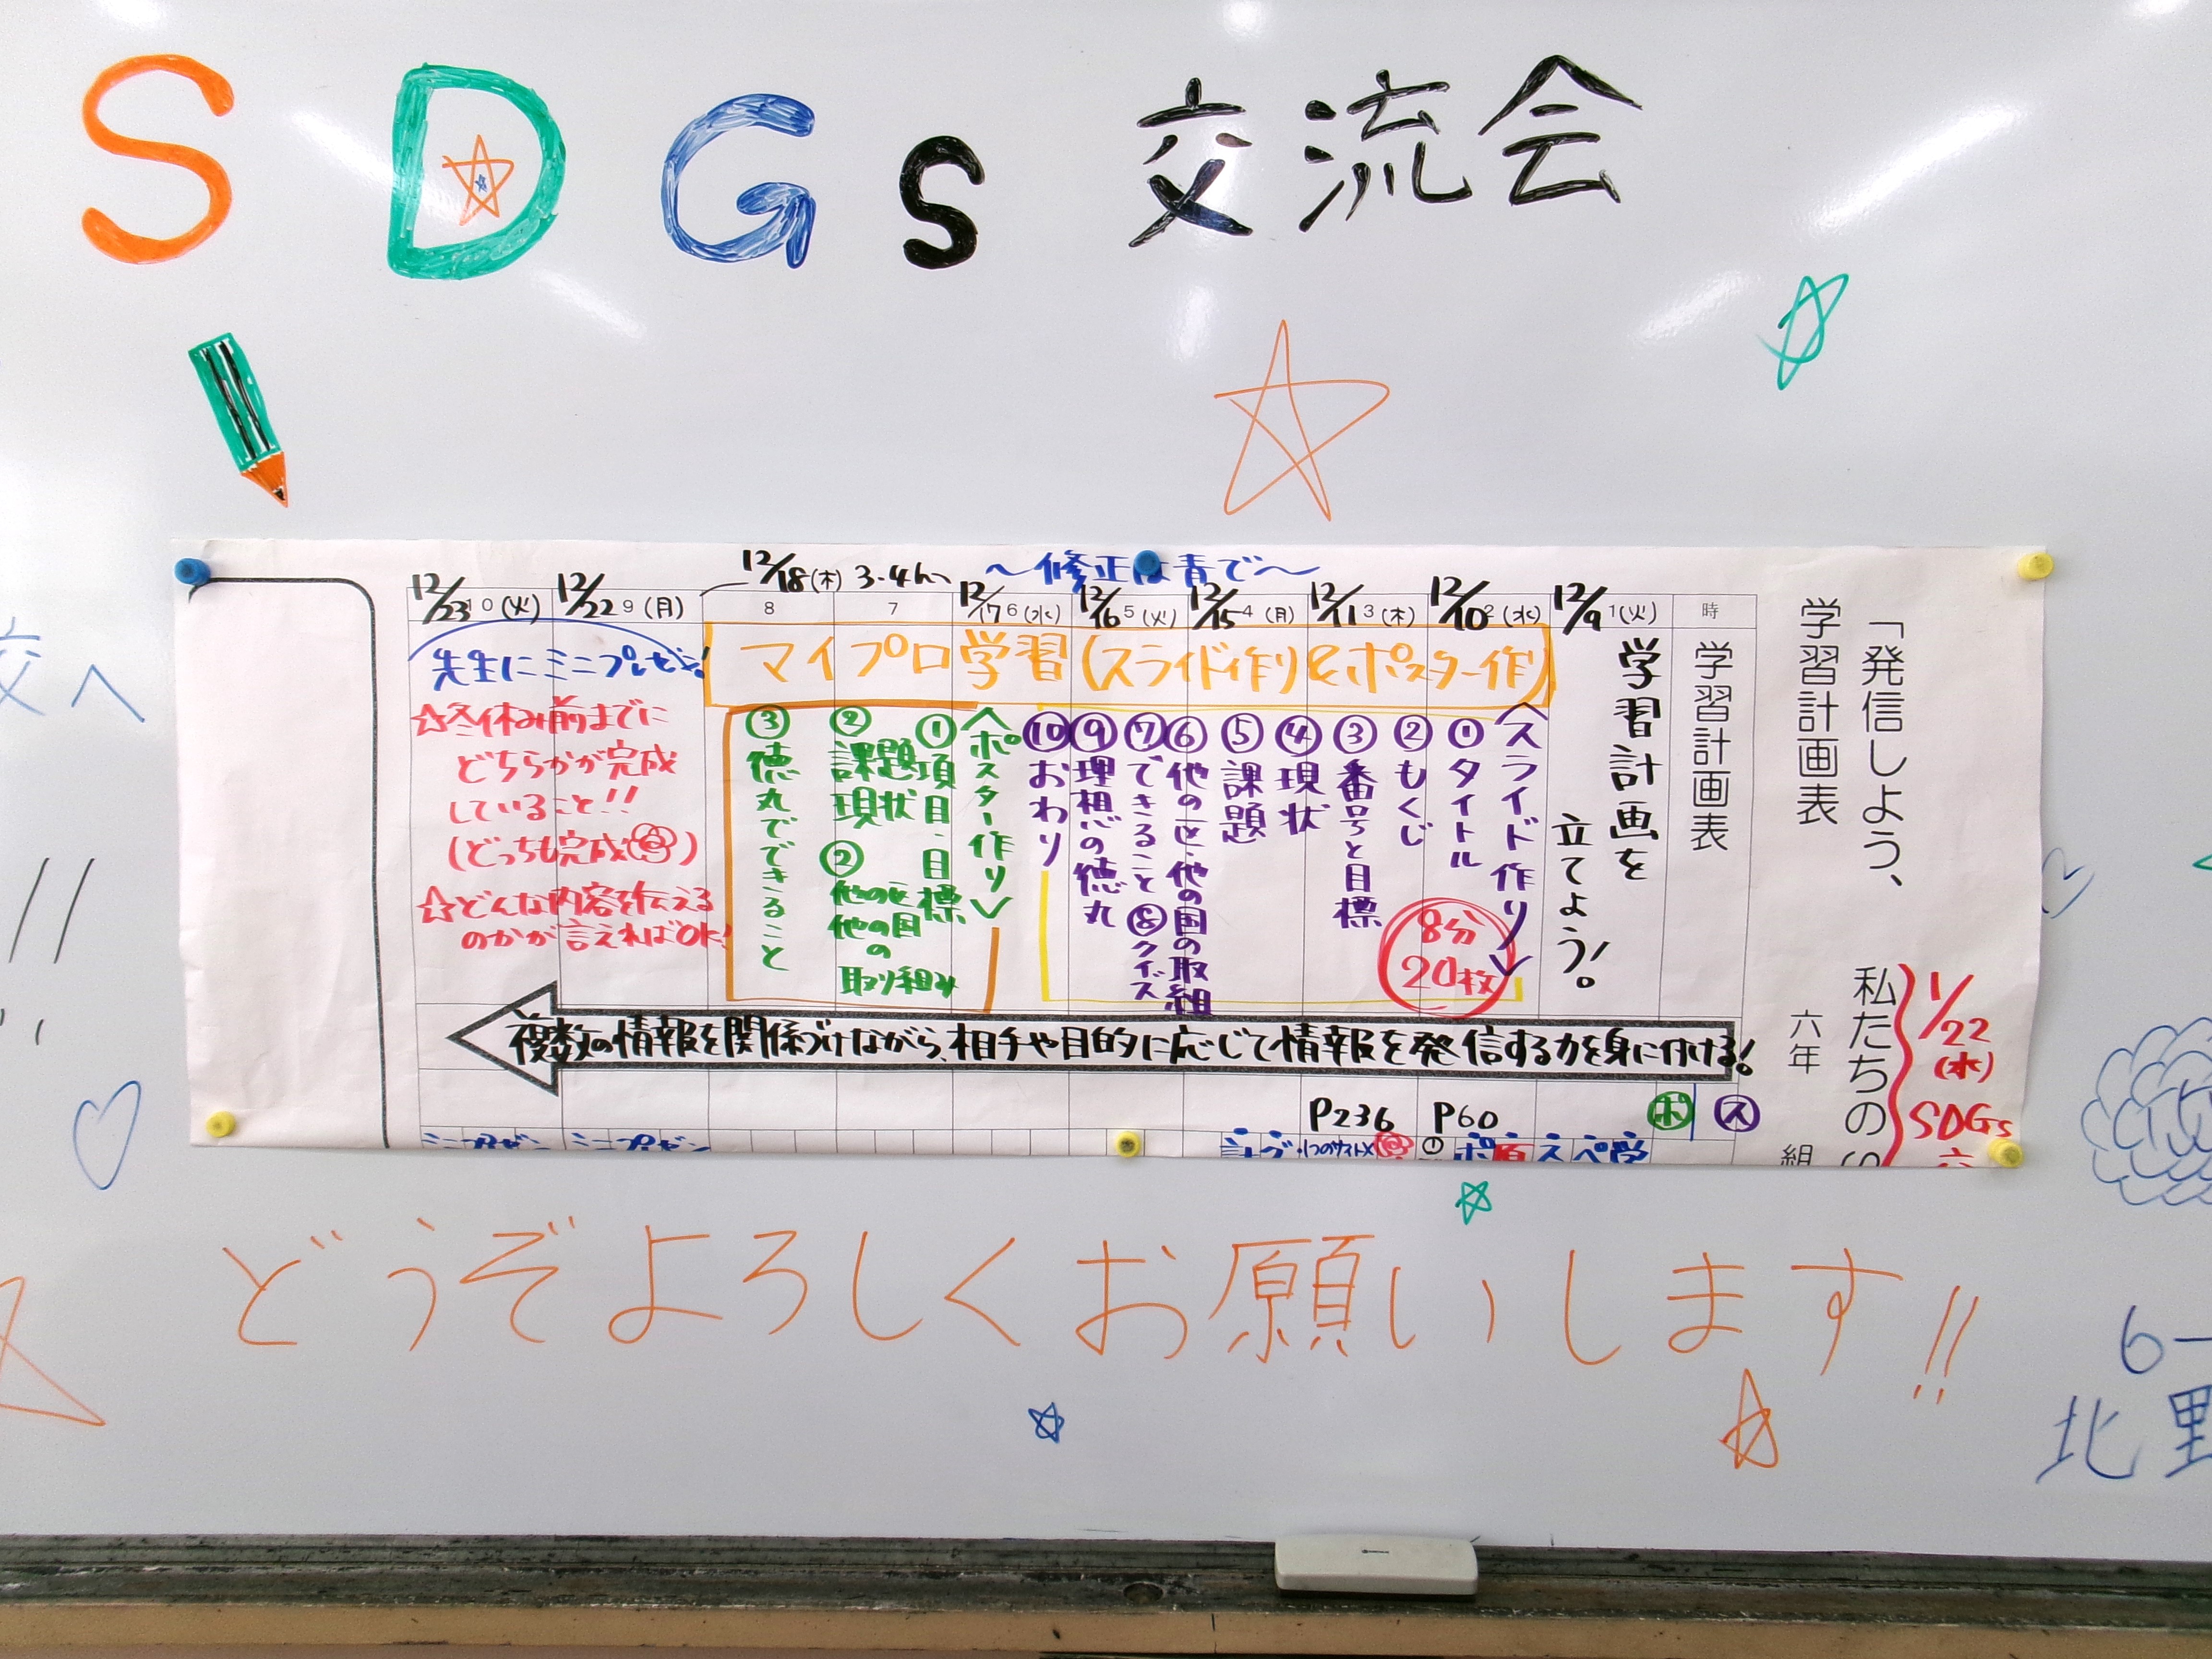 SDGs 交流会
～修正は青で～
「発信しよう、私たちのS
学習計画表
六年 組
1/22
(水)
SDGs
時
学習計画表
12/9 1(火)
学習計画を
立てよう!
12/10 2(水)
12/11 3(木)
12/15 4(月)
12/16 5(火)
12/17 6(水)
7
8
12/18(木) 3.4h
12/22 9(月)
12/23 10(火)
マイプロ学習(スライド作り&ポスター作り)
<スライド作り>
①タイトル
②もくじ
③番号と目標
④現状
⑤課題
⑥他の区・他の国の取組
⑦できること
⑧クイズ
⑨理想の徳丸
⑩おわり
8分
20枚
<ポスター作り>
①項目・目標
②課題
現状
②他の区
他の国
の
取り組み
③徳丸でできること
先生にミニプレゼン!
☆冬休み前までに
どちらかが完成
していること!!
(どっちも完成)
☆どんな内容を伝える
のかが言えればOK!
複数の情報を関係づけながら、相手や目的に応じて情報を発信する力を身に付ける!
P236
P60
ポ
ス
ミニプレゼン
ミニプレゼン
どうぞよろしくお願いします!!
6-
北野